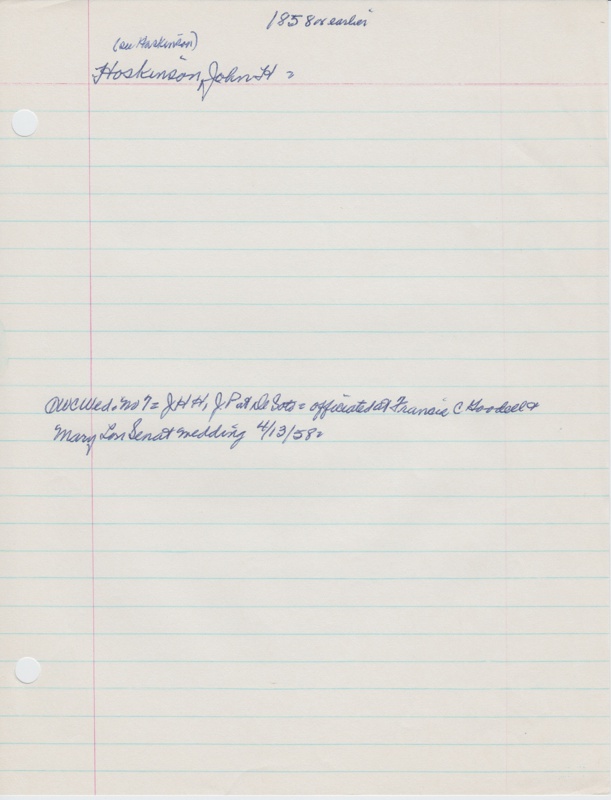 1858 or earlier
(see Haskinson)
Hoskinson, John H =
OWCWed. No 7 = J H H, J.P. at De Soto = officiated at Francis C Goodsell &
Mary Lou Senat wedding 4/13/58 =